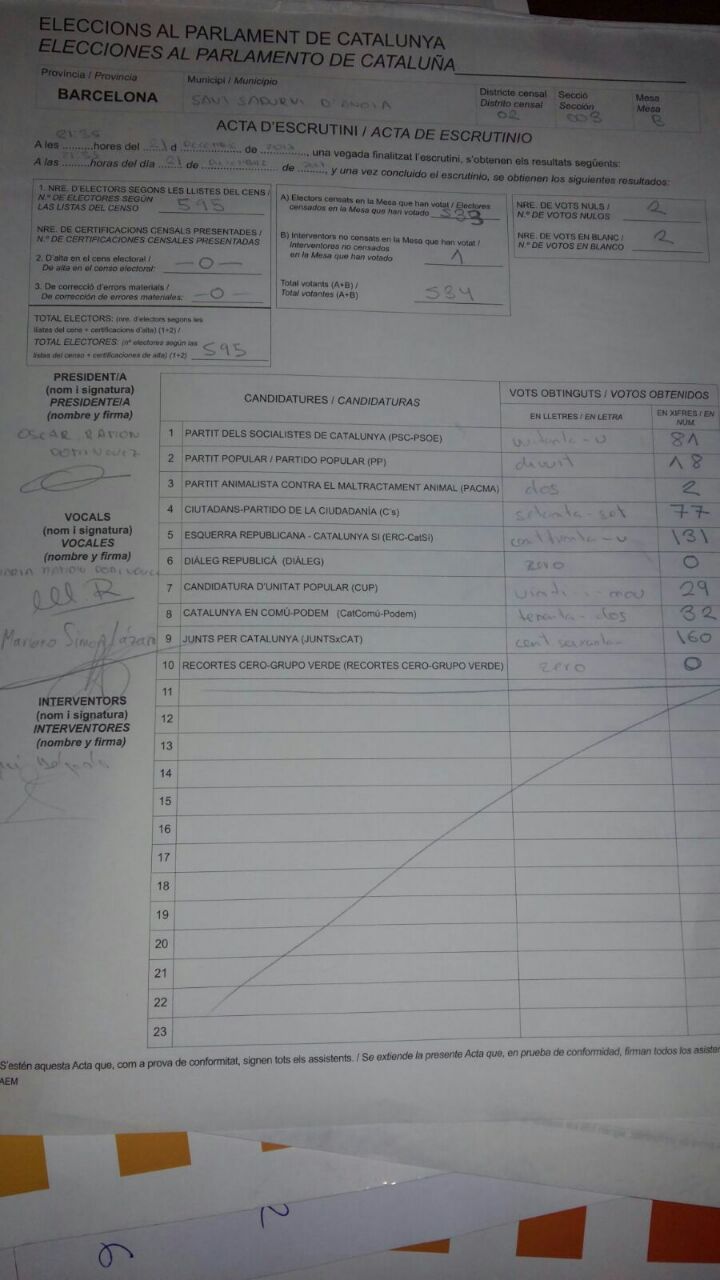 ELECCIONS AL PARLAMENT DE CATALUNYA
ELECCIONES AL PARLAMENTO DE CATALUÑA
Província / Provincia
BARCELONA
Municipi / Municipio
SANT SADURNI D'ANOIA
Districte censal
Distrito censal
02
Secció
Sección
003
Mesa
Mesa
B
ACTA D'ESCRUTINI / ACTA DE ESCRUTINIO
A les 21:35 hores del 21 d de, una vegada finalitzat l'escrutini, s'obtenen els resultats següents:
A las 21:35 horas del día 21 de de, y una vez concluido el escrutinio, se obtienen los siguientes resultados:
1. NRE. D'ELECTORS SEGONS LES LLISTES DEL CENS /
N.º DE ELECTORES SEGÚN
LAS LISTAS DEL CENSO 595
NRE. DE CERTIFICACIONS CENSALS PRESENTADES /
N.º DE CERTIFICACIONES CENSALES PRESENTADAS
2. D'alta en el cens electoral /
De alta en el censo electoral: —0—
3. De correcció d'errors materials /
De corrección de errores materiales: —0—
TOTAL ELECTORS: (nre. d'electors segons les
llistes del cens + certificacions d'alta) (1+2) /
TOTAL ELECTORES: (nº electores según las
listas del censo + certificaciones de alta) (1+2) 595
A) Electors censats en la Mesa que han votat / Electores
censados en la Mesa que han votado 533
B) Interventors no censats en la Mesa que han votat /
Interventores no censados
en la Mesa que han votado 1
Total votants (A+B) /
Total votantes (A+B) 534
NRE. DE VOTS NULS /
N.º DE VOTOS NULOS 2
NRE. DE VOTS EN BLANC /
N.º DE VOTOS EN BLANCO 2
PRESIDENT/A
(nom i signatura)
PRESIDENTE/A
(nombre y firma)
OSCAR RAMON
DOMINGUEZ
VOCALS
(nom i signatura)
VOCALES
(nombre y firma)
Mariano Simon Lázaro
INTERVENTORS
(nom i signatura)
INTERVENTORES
(nombre y firma)
CANDIDATURES / CANDIDATURAS
VOTS OBTINGUTS / VOTOS OBTENIDOS
EN LLETRES / EN LETRA
EN XIFRES / EN NUM.
1 PARTIT DELS SOCIALISTES DE CATALUNYA (PSC-PSOE) vuitanta-u 81
2 PARTIT POPULAR / PARTIDO POPULAR (PP) divuit 18
3 PARTIT ANIMALISTA CONTRA EL MALTRACTAMENT ANIMAL (PACMA) dos 2
4 CIUTADANS-PARTIDO DE LA CIUDADANÍA (C's) setanta-set 77
5 ESQUERRA REPUBLICANA - CATALUNYA SÍ (ERC-CatSí) 131
6 DIÀLEG REPUBLICÀ (DIÀLEG) zero 0
7 CANDIDATURA D'UNITAT POPULAR (CUP) vint-i-nou 29
8 CATALUNYA EN COMÚ-PODEM (CatComú-Podem) trenta-dos 32
9 JUNTS PER CATALUNYA (JUNTSxCAT) cent seixanta 160
10 RECORTES CERO-GRUPO VERDE (RECORTES CERO-GRUPO VERDE) zero 0
11
12
13
14
15
16
17
18
19
20
21
22
23
S'estén aquesta Acta que, com a prova de conformitat, signen tots els assistents. / Se extiende la presente Acta que, en prueba de conformidad, firman todos los
AEM
6
2